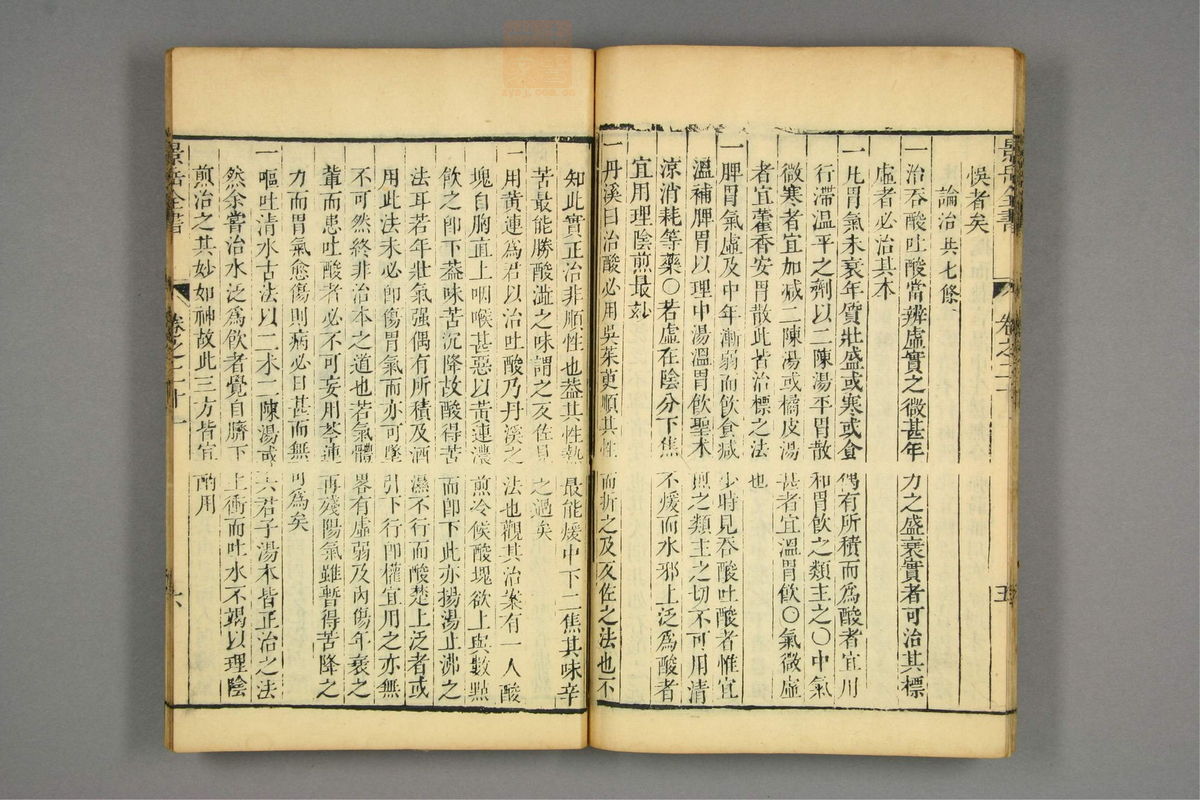 悞者矣
論治共七條
一治吞酸吐酸當辨虛實之微甚年力之盛衰實者可治其標
虛者必治其本
一凡胃氣未衰年質壯盛或寒或食偶有所積而爲酸者宜用
行滯温平之劑以二陳湯平胃散和胃飮之類主之〇中氣
微寒者宜加减二陳湯或橘皮湯甚者宜溫胃飮〇氣微虛
者宜藿香安胃散此皆治標之法也
一脾胃氣虛及中年漸弱而飮食减少時見吞酸吐酸者惟宜
溫補脾胃以理中湯溫胃飮聖术煎之類主之切不可用清
凉消耗等藥〇若虛在陰分下焦不煖而水邪上泛爲酸者
宜用理陰煎最妙
一丹溪曰治酸必用吳茱萸順其性而折之及反佐之法也不
景岳全書
卷之二十
五
知此實正治非順性也葢其性熱最能煖中下二焦其味辛
苦最能勝酸澁之味謂之反佐見之過矣
一用黃連爲君以治吐酸乃丹溪之法也觀其治案有一人酸
塊自胸直上咽喉甚惡以黃連濃煎冷候酸塊欲上與數㸃
飮之卽下葢味苦沉降故酸得苦而卽下此亦揚湯止沸之
法耳若年壯氣强偶有所積及酒濕不行而酸楚上泛者或
用此法未必卽傷胃氣而亦可墜引下行卽權宜用之亦無
不可然終非治本之道也若氣體畧有虛弱及內傷年衰之
輩而患吐酸者必不可妄用芩連再殘陽氣雖暫得苦降之
力而胃氣愈傷則病必日甚而無可爲矣
一嘔吐清水古法以二术二陳湯或六君子湯本皆正治之法
然余嘗治水泛爲飮者覺自臍下上衝而吐水不竭以理陰
煎治之其妙如神故此三方皆宜酌用
景岳全書
卷之二十一
六